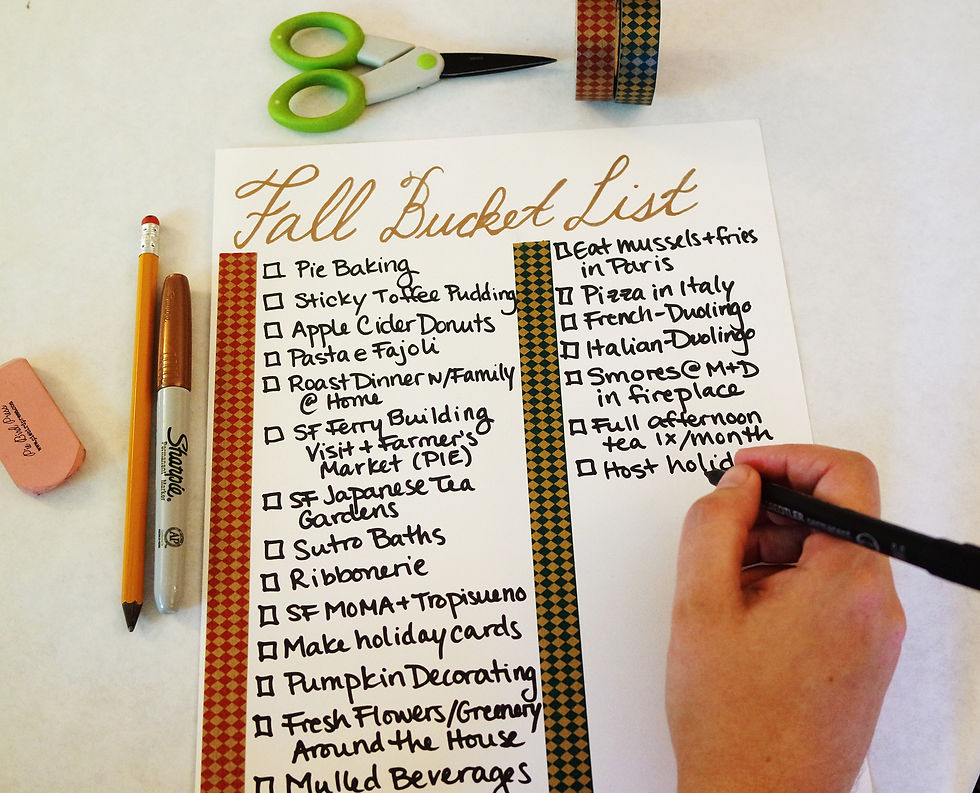 Fall Bucket List
Pie Baking
Sticky Toffee Pudding
Apple Cider Donuts
Pasta e Fajoli
Roast Dinner w/Family
@ Home
SF Ferry Building
Visit + Farmer's
Market (PIE)
SF Japanese Tea
Gardens
Sutro Baths
Ribbonerie
SF MOMA + Tropisueno
Make holiday cards
Pumpkin Decorating
Fresh Flowers/Greenery
Around the House
Mulled Beverages
Eat mussels + fries
in Paris
Pizza in Italy
French-Duolingo
Italian-Duolingo
Smores @ M+D
in fireplace
Full afternoon
tea 1x/month
Host holid
Sharpie.
Permanent Marker
AP
STAEDTLER permanent